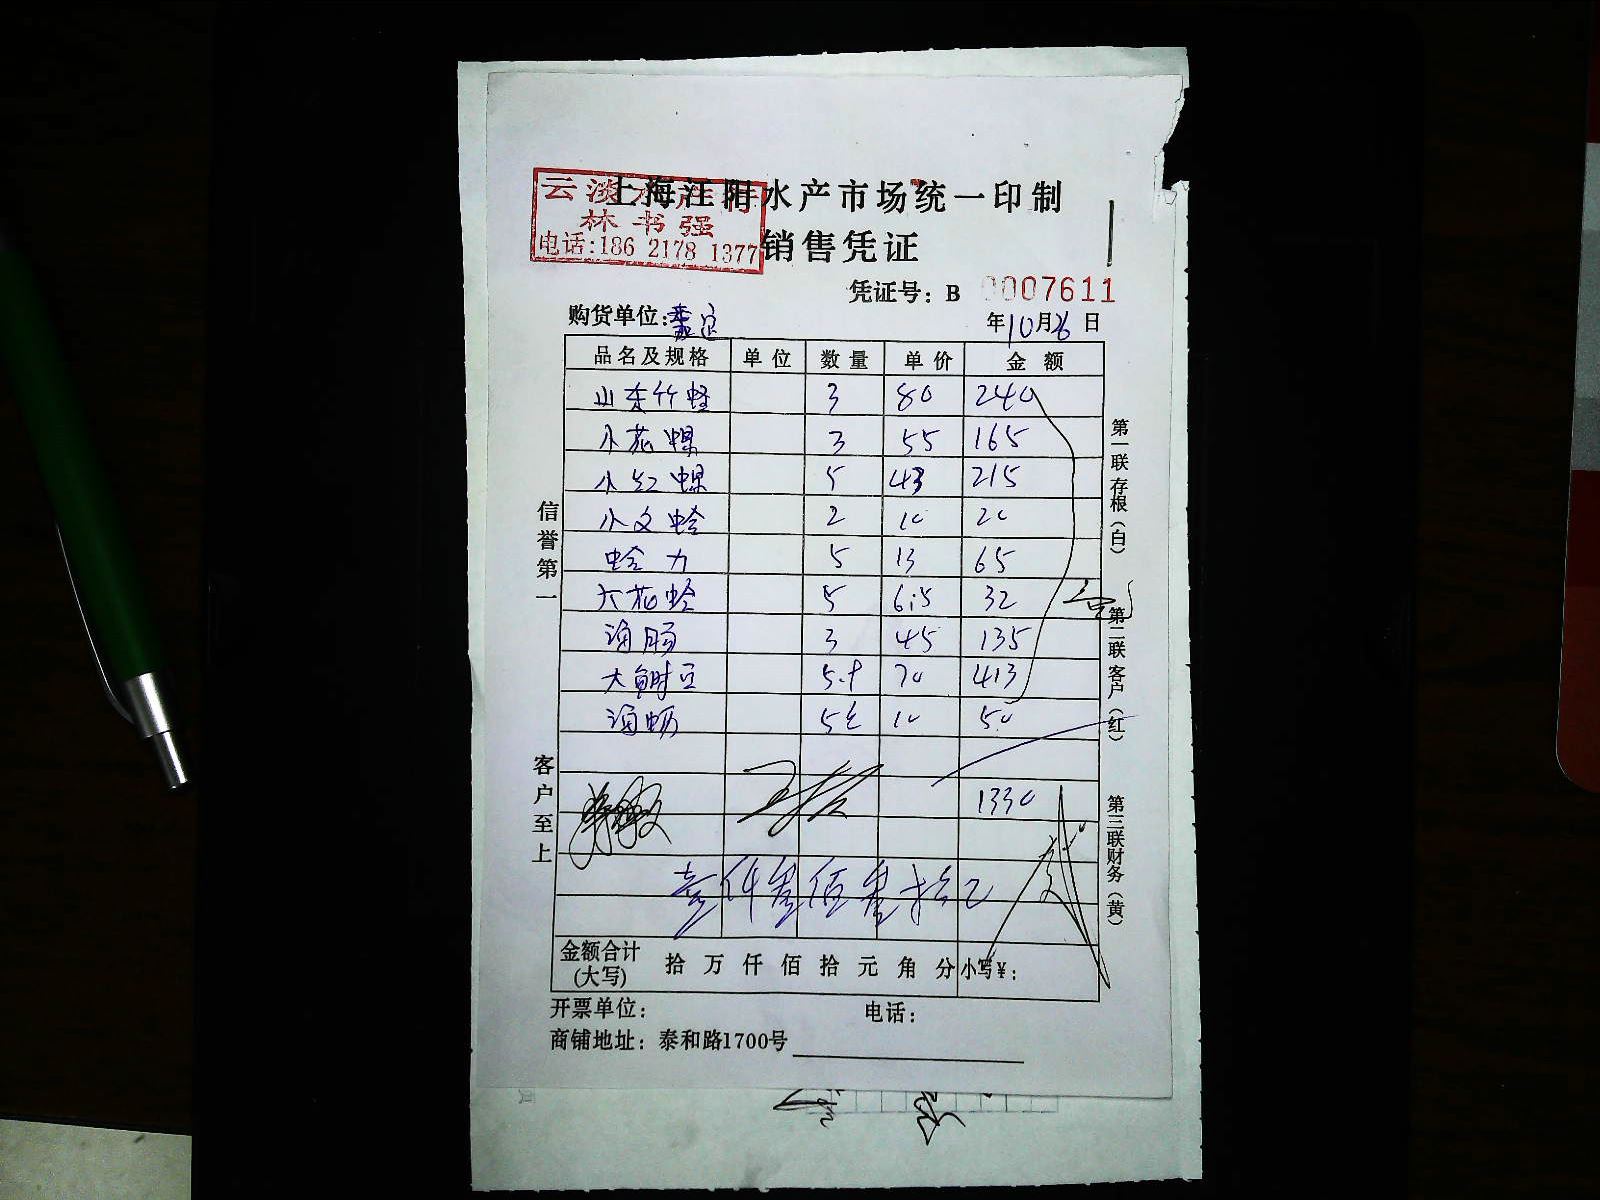 上海江阳水产市场统一印制
云淡水产行
林书强
电话:186 2178 1377
销售凭证
凭证号: B 0007611
购货单位:
年10月26日
品名及规格 单位 数量 单价 金额
山东竹蛏 3 80 240
小花螺 3 55 165
小红螺 5 43 215
小文蛤 2 10 20
蛤力 5 13 65
大花蛤 5 6.5 32
海肠 3 45 135
大鲥豆 5.9 70 413
海蛎 5 10 50
1330
壹仟叁佰叁拾
金额合计
(大写) 拾 万 仟 佰 拾 元 角 分 小写¥:
开票单位: 电话:
商铺地址: 泰和路1700号
信誉第一
客户至上
第一联存根(白)
第二联客户(红)
第三联财务(黄)